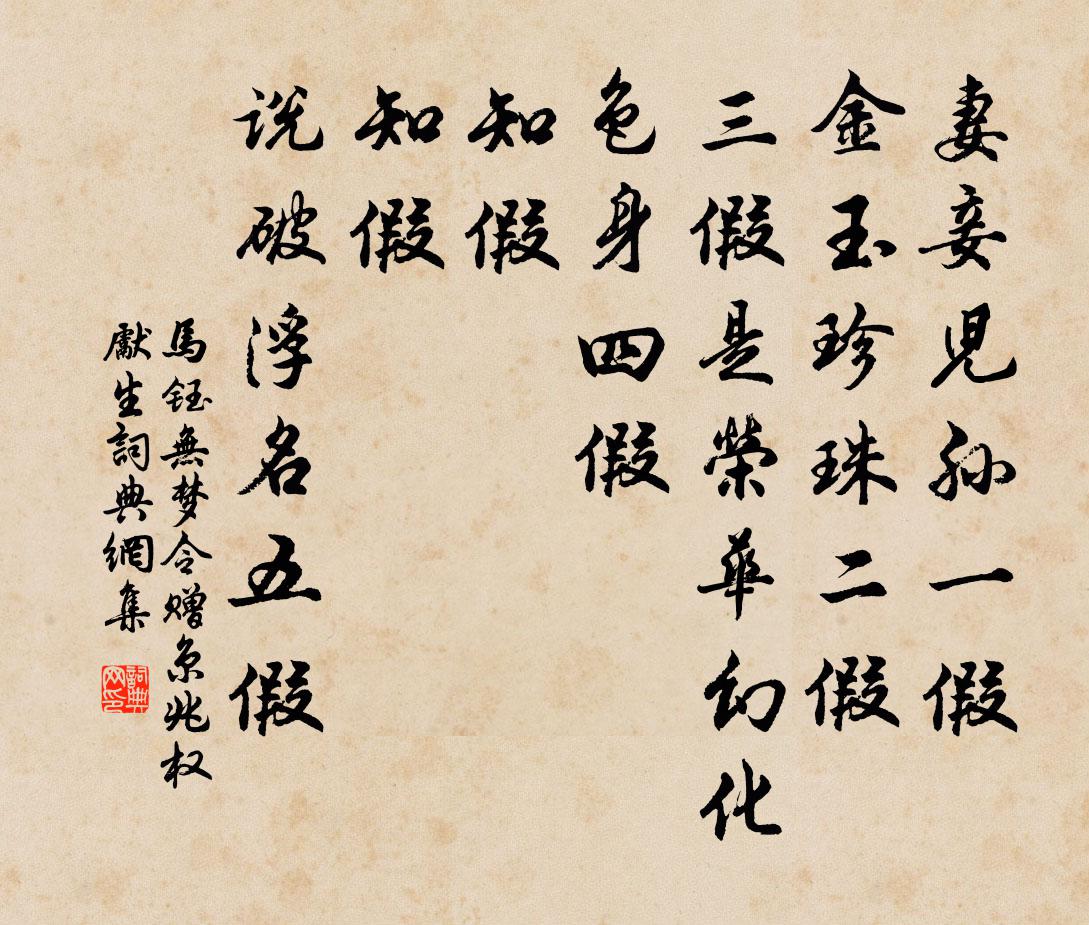 妻妾児孙一假
金玉珍珠二假
三假是榮華幻化
色身四假
知假
知假
说破浮名五假
馬鈺無梦令赠京兆权
獻生詞典網集
詞典网印